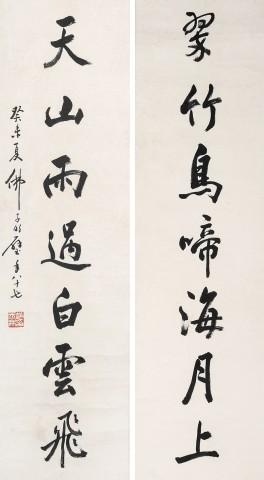 翠竹鳥啼海月上
天山雨過白雲飛
癸未夏佛子明璧年八十七